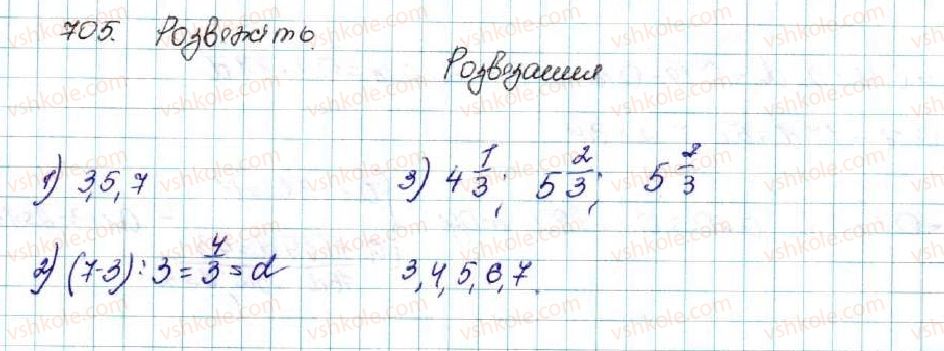 705. Розвежіть.
Розвезання
1) 3,5,7
3) 4 1/3; 5 2/3; 5 2/3
2) (7-3):3=4/3=d
3,4,5,6,7.
vshkole.com